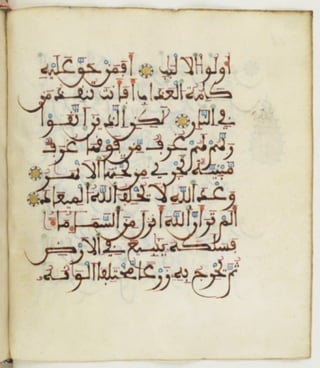 أولوا الالبب أفمن حق عليه
كلمة العذاب أفأنت تنقذ من
في النار لكن الذين اتقوا
ربهم لهم غرف من فوقها غرف
مبنية تجري من تحتها الانهر
وعد الله لا يخلف الله الميعاد
ألم تر أن الله أنزل من السماء ماء
فسلكه ينبيع في الارض
ثم يخرج به زرعا مختلفا الونه